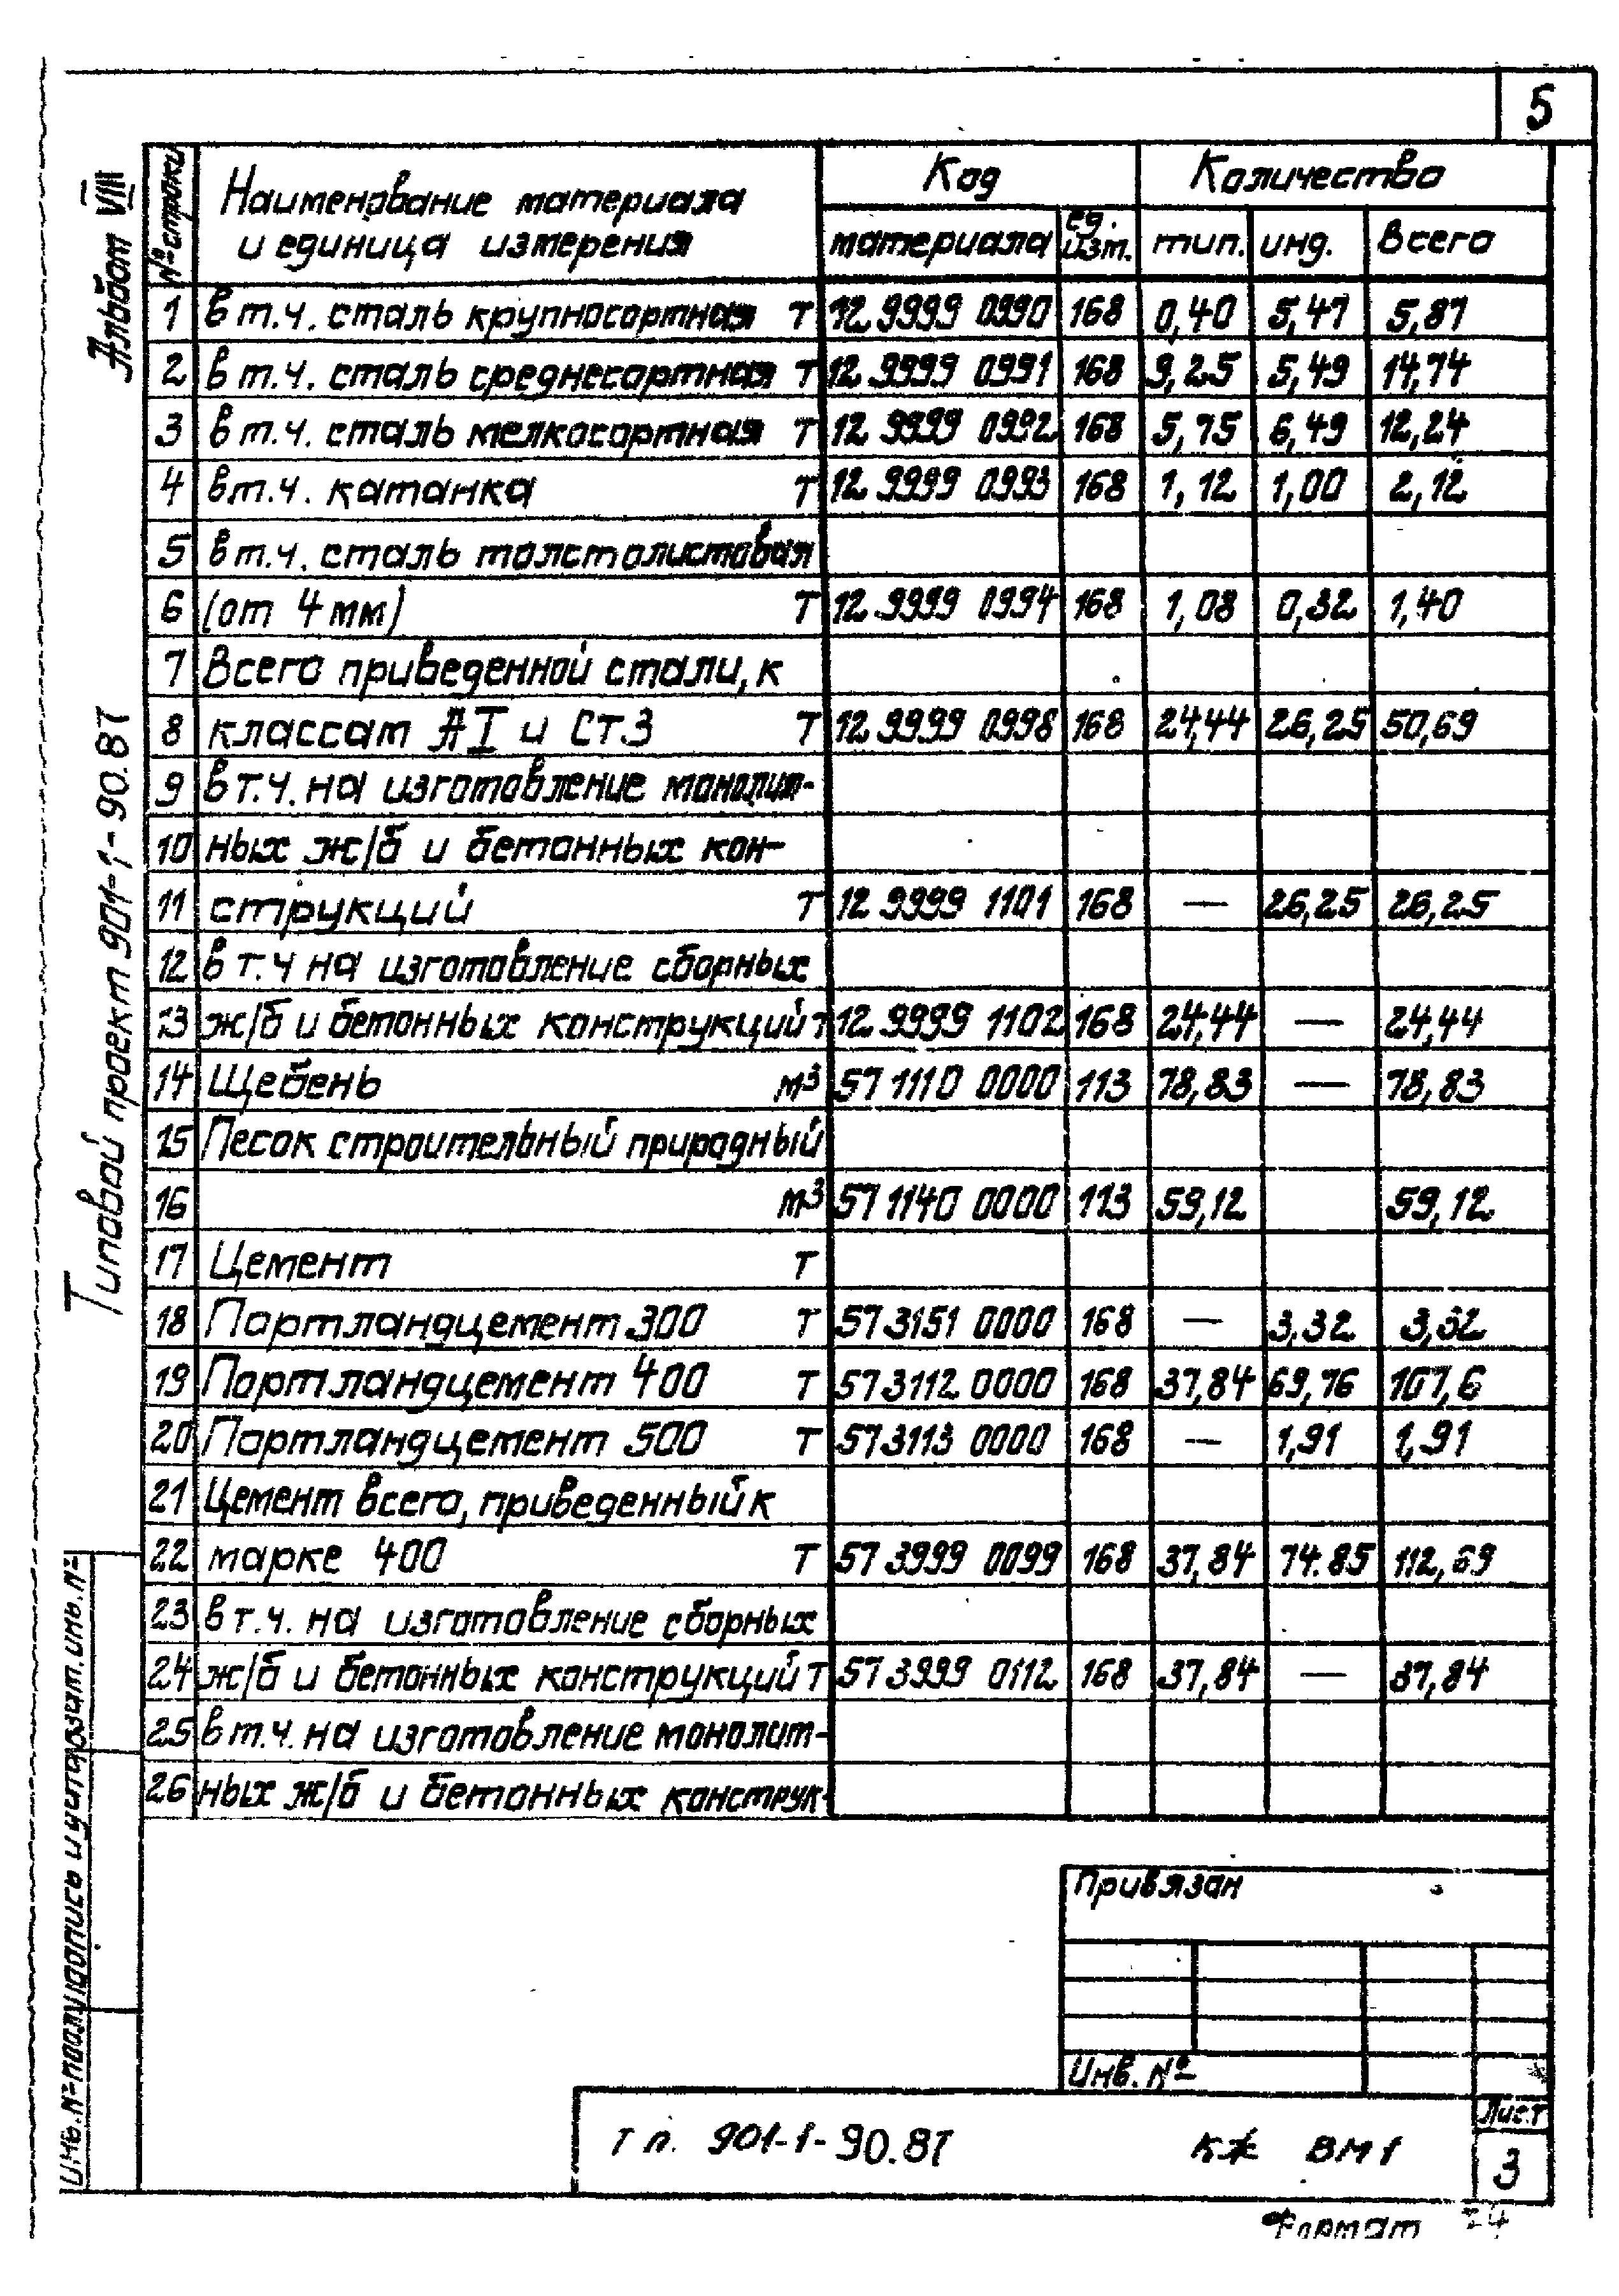 5
Альбом VIII
Типовой проект 901-1-90.87
№ строки
Наименование материала
и единица измерения
Код
Количество
материала
ед.
изм.
тип.
инд.
Всего
1 в т.ч. сталь крупносортная т 12 9999 0990 168 0,40 5,47 5,87
2 в т.ч. сталь среднесортная т 12 9999 0991 168 9,25 5,49 14,74
3 в т.ч. сталь мелкосортная т 12 9999 0992 168 5,75 6,49 12,24
4 в т.ч. катанка т 12 9999 0993 168 1,12 1,00 2,12
5 в т.ч. сталь толстолистовая
6 (от 4 мм) т 12 9999 0994 168 1,08 0,32 1,40
7 Всего приведенной стали, к
8 классам АI и Ст3 т 12 9999 0998 168 24,44 26,25 50,69
9 в т.ч. на изготовление монолит-
10 ных ж/б и бетонных кон-
11 струкций т 12 9999 1101 168 — 26,25 26,25
12 в т.ч на изготовление сборных
13 ж/б и бетонных конструкций т 12 9999 1102 168 24,44 — 24,44
14 Щебень м³ 57 1110 0000 113 78,83 — 78,83
15 Песок строительный природный
16 м³ 57 1140 0000 113 59,12 59,12
17 Цемент т
18 Портландцемент 300 т 57 3151 0000 168 — 3,32 3,32
19 Портландцемент 400 т 57 3112 0000 168 37,84 69,76 107,6
20 Портландцемент 500 т 57 3113 0000 168 — 1,91 1,91
21 Цемент всего, приведенный к
22 марке 400 т 57 3999 0099 168 37,84 74.85 112,69
23 в т.ч. на изготовление сборных
24 ж/б и бетонных конструкций т 57 3999 0112 168 37,84 — 37,84
25 в т.ч. на изготовление монолит-
26 ных ж/б и бетонных конструк-
Привязан
Инв. №
Т п. 901-1-90.87
КЖ ВМ1
Лист
3
Формат
Инв. № подл
Подпись и дата
Взам. инв. №